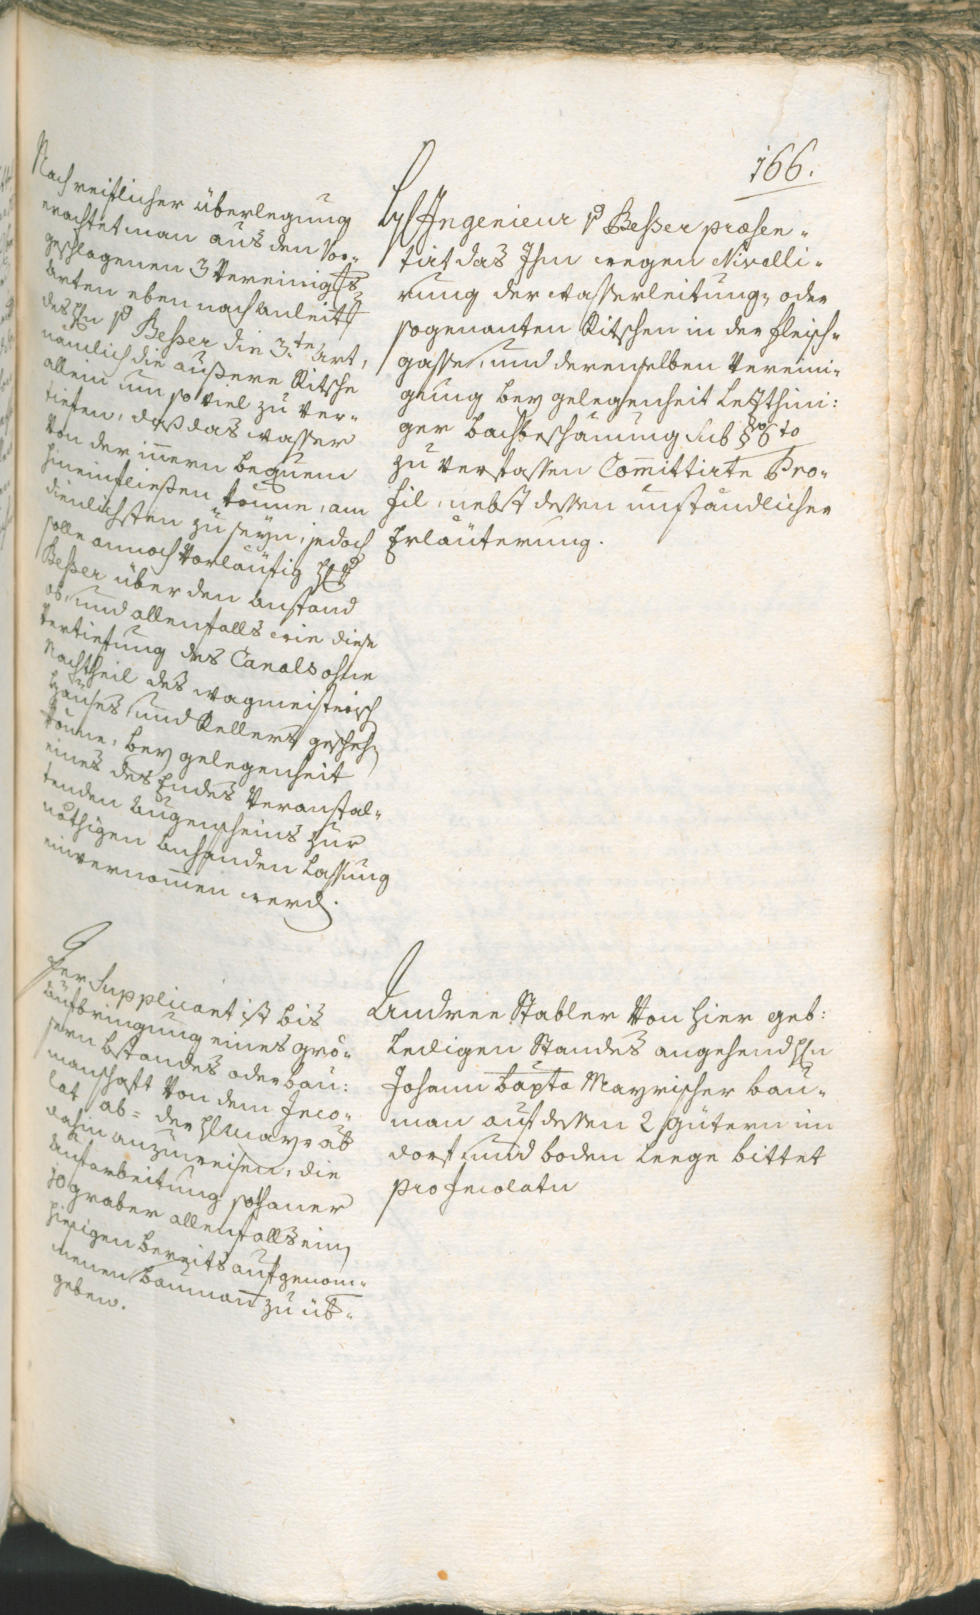 166.
Nach reiflicher überlegung
erachtet man aus den Vor-
geschlagenen 3 Vereiniggs
Arten eben nach anleitg
des Hn v Beßer die 3.te Art,
nämlich die äußere Ritsche
allein um so viel zu ver-
tiefen, daß das wasser
von der innern bequem
hineinfließen könne, am
dienlichsten zu seyn, jedoch
solle annoch vorläufig H v
Beßer über den anstand
ob, und allenfalls wie diese
Vertiefung des Canals ohne
Nachtheil des wagmeisterisch
Hauses und Kellers gescheh
könne, bey gelegenheit
eines des Endes Veranstal-
tenden augenscheins zur
nöthigen anhanden Lassung
einvernomen werd.
H Ingenieur v Beßer præsen-
tirt das Ihm wegen Nivelli-
rung der wasserleitung, oder
sogenanten Ritschen in der fleisch-
gasse, und derenselben Vereini-
gung bey gelegenheit Letzthini:
ger bachbeschauung sub § 6to
zu verfassen Committirte Pro-
fil, nebst dessen umständlicher
Erläuterung.
Der Supplicant ist bis
aufbringung eines grö-
sern bstandes oder bau:
manschaft von dem Inco-
lat ab= der H Mayr aber
dahin anzuweisen, die
aufarbeitung sothaner
graber allenfalls ein
hiesigen bereits aufgenom-
menen bauman zu üb-
geben.
Andree Stabler von hier geb:
Ledigen Standes angehend Hn
Johann bapta Mayrischer bau-
man auf dessen 2 gütern im
dorf und boden Leege bittet
pro Incolatu